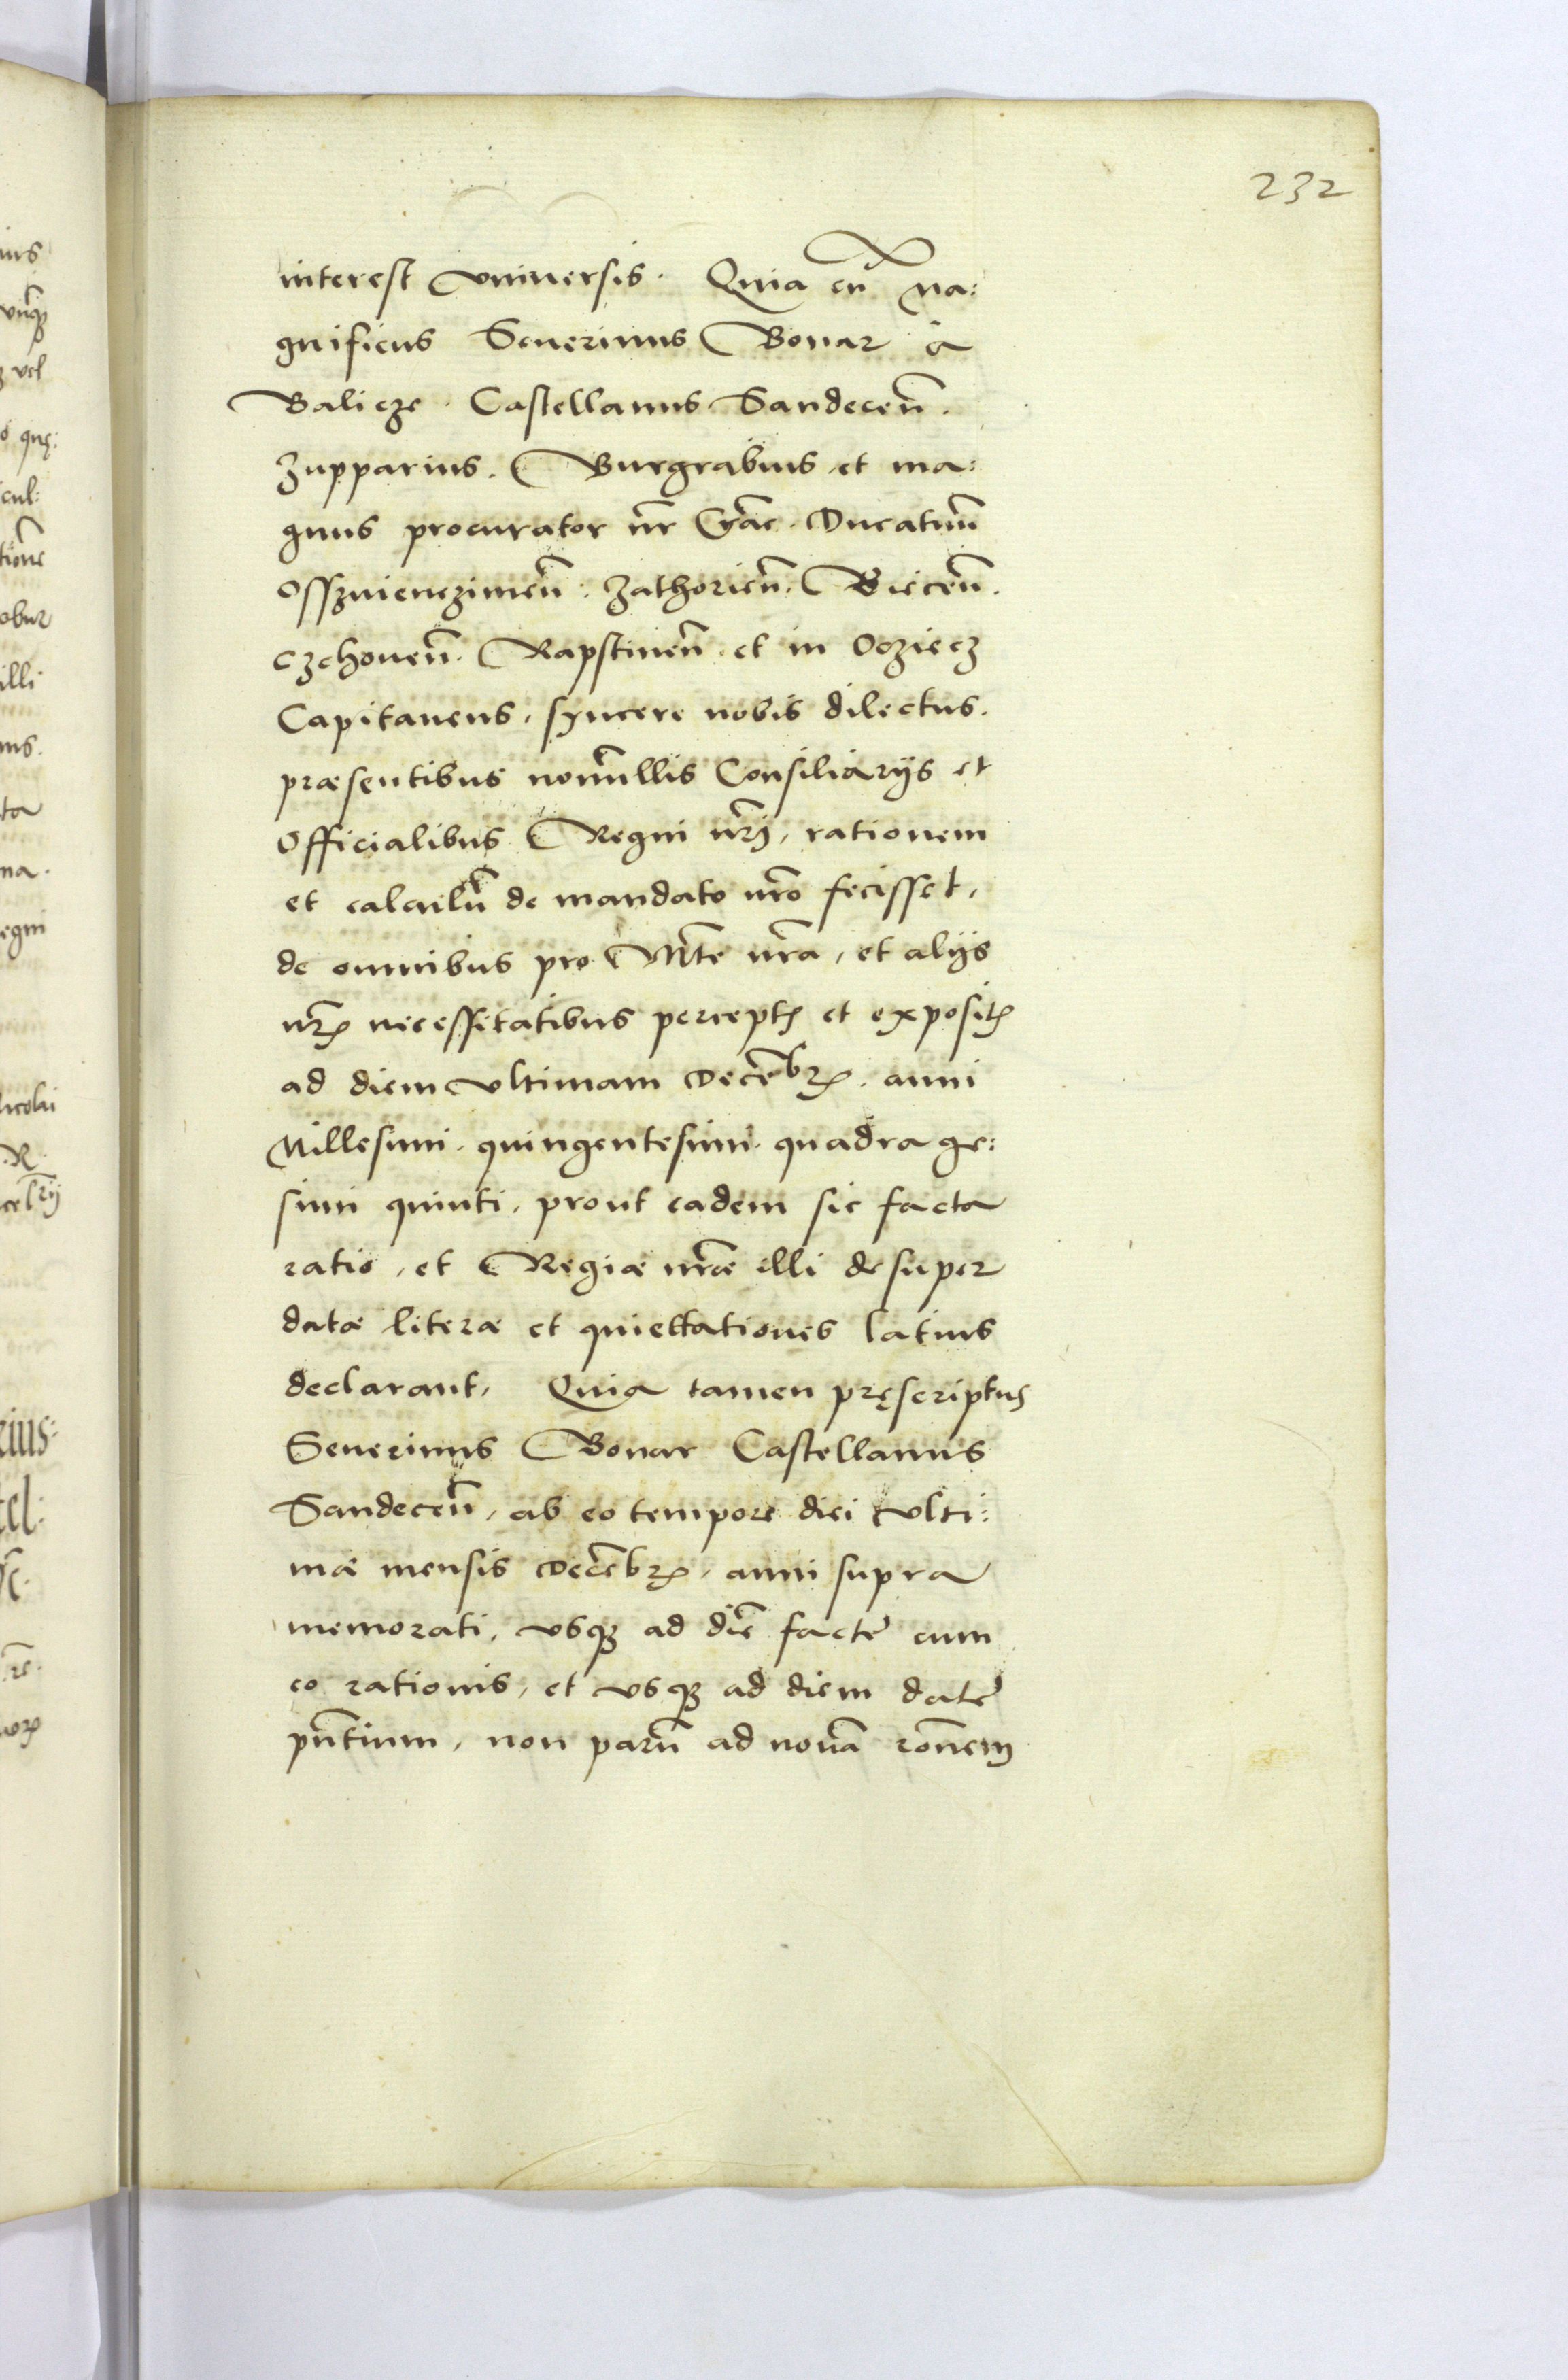 232
interest vniuersis. Quia cũ Ma:
gnificus Seuerinus Bonar à
Balicze. Castellanus Sandeceñ.
Zupparius. Burgrabius et ma:
gnus procurator nr̃ Crac̃. Ducatuũ
Osszwienczimeñ. Zathorieñ. Bieceñ.
Czchoueñ. Rapstineñ. et in Ocziecz
Capitaneus, syncere nobis dilectus.
præsentibus nonnullis Consiliarijs et
Officialibus Regni nr̃i, rationem
et calculũ de mandato nr̃o fecisset,
de omnibus pro Mt̃e nr̃a, et alijs
nr̃is necessitatibus perceptis et expositis
ad diem vltimam Decẽbris. anni
Millesimi. quingentesimi. quadrage:
simi quinti, prout eadem sic facta
ratio, et Regiæ nr̃æ illi desuper
datæ literæ et quiettationes latius
declarant, Quia tamen pręscriptus
Seuerinus Bonar Castellanus
Sandeceñ, ab eo tempore diei vlti:
mæ mensis Decẽbris, anni supra
memorati, vsq; ad diẽ factę cum
eo rationis, et vsq; ad diem datę
pñtium, non parũ ad nouã rõnem